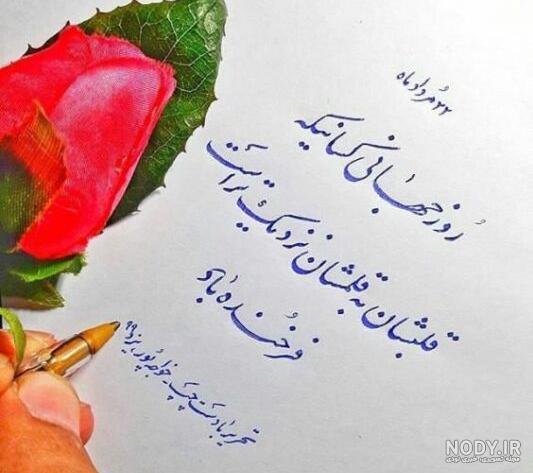 ۲۲ مُرداد ماه
رُوز جهانی کسانیکه
قلبشان به قلمشان نزدیک تر است
فرخُنده باد
تحریر با دست چپ، خواجه پور، یزد ۹۹
NODY.IR